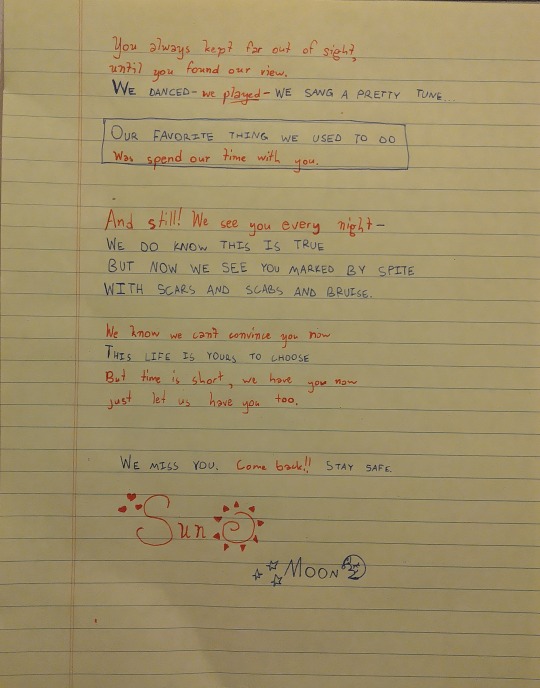 You always kept far out of sight,
until you found our view.
WE DANCED- we played- WE SANG A PRETTY TUNE...
OUR FAVORITE THING WE USED TO DO
Was spend our time with you.
And still! We see you every night-
WE DO KNOW THIS IS TRUE
BUT NOW WE SEE YOU MARKED BY SPITE
WITH SCARS AND SCABS AND BRUISE.
We know we can't convince you now
THIS LIFE IS YOURS TO CHOOSE
But time is short, we have you now
just let us have you too.
WE MISS YOU. Come back!! STAY SAFE.
Sun
MOON